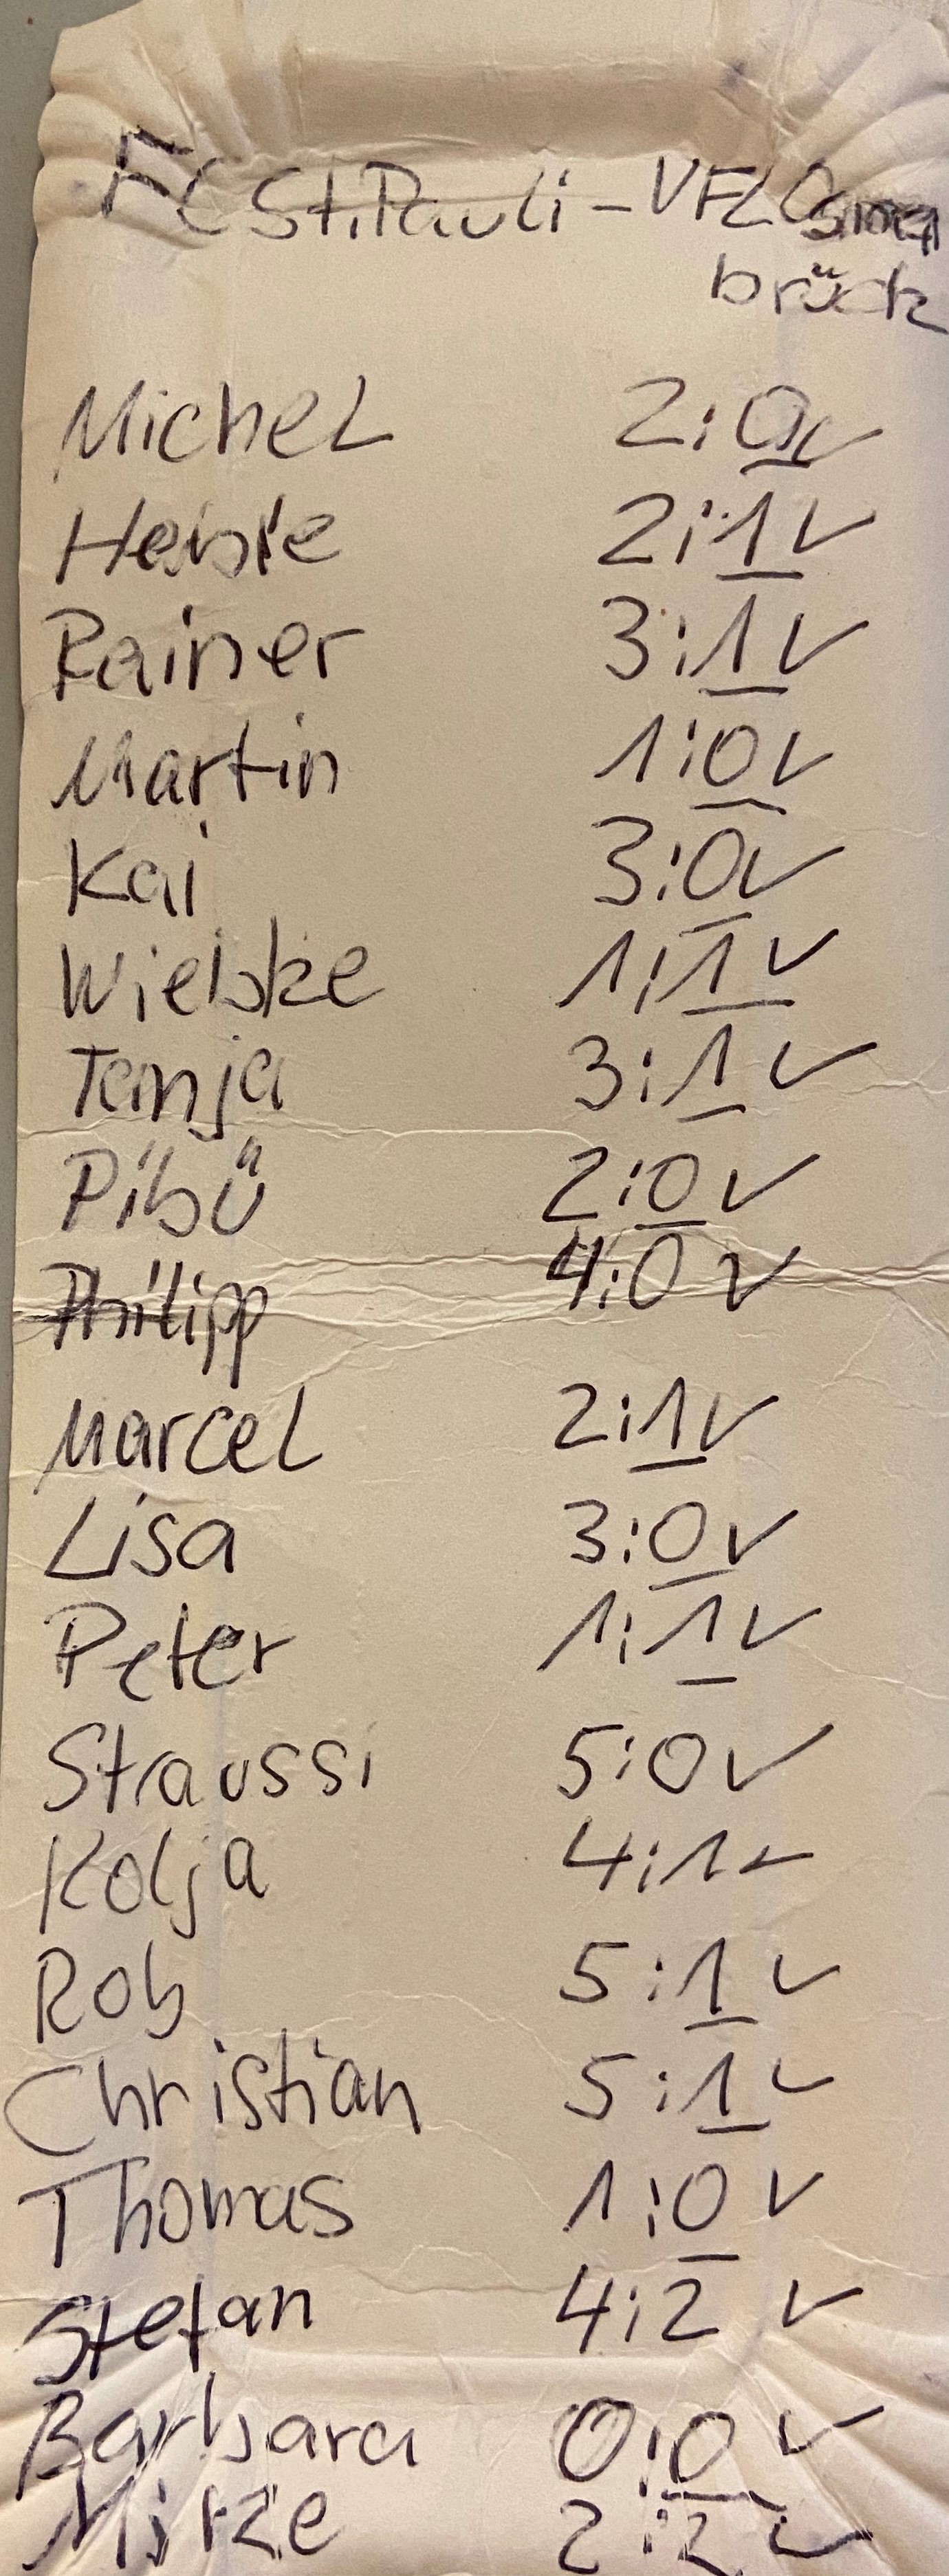 FC St. Pauli - VFL Osna
brück
Michel 2:0 ✓
Heinie 2:1 ✓
Rainer 3:1 ✓
Martin 1:0 ✓
Kai 3:0 ✓
Wiebke 1:1 ✓
Tanja 3:1 ✓
Pibü 2:0 ✓
Philipp 4:0 ✓
Marcel 2:1 ✓
Lisa 3:0 ✓
Peter 1:1 ✓
Straussi 5:0 ✓
Kolja 4:1 ✓
Rob 5:1 ✓
Christian 5:1 ✓
Thomas 1:0 ✓
Stefan 4:2 ✓
Barbara 0:0 ✓
2:2 ✓